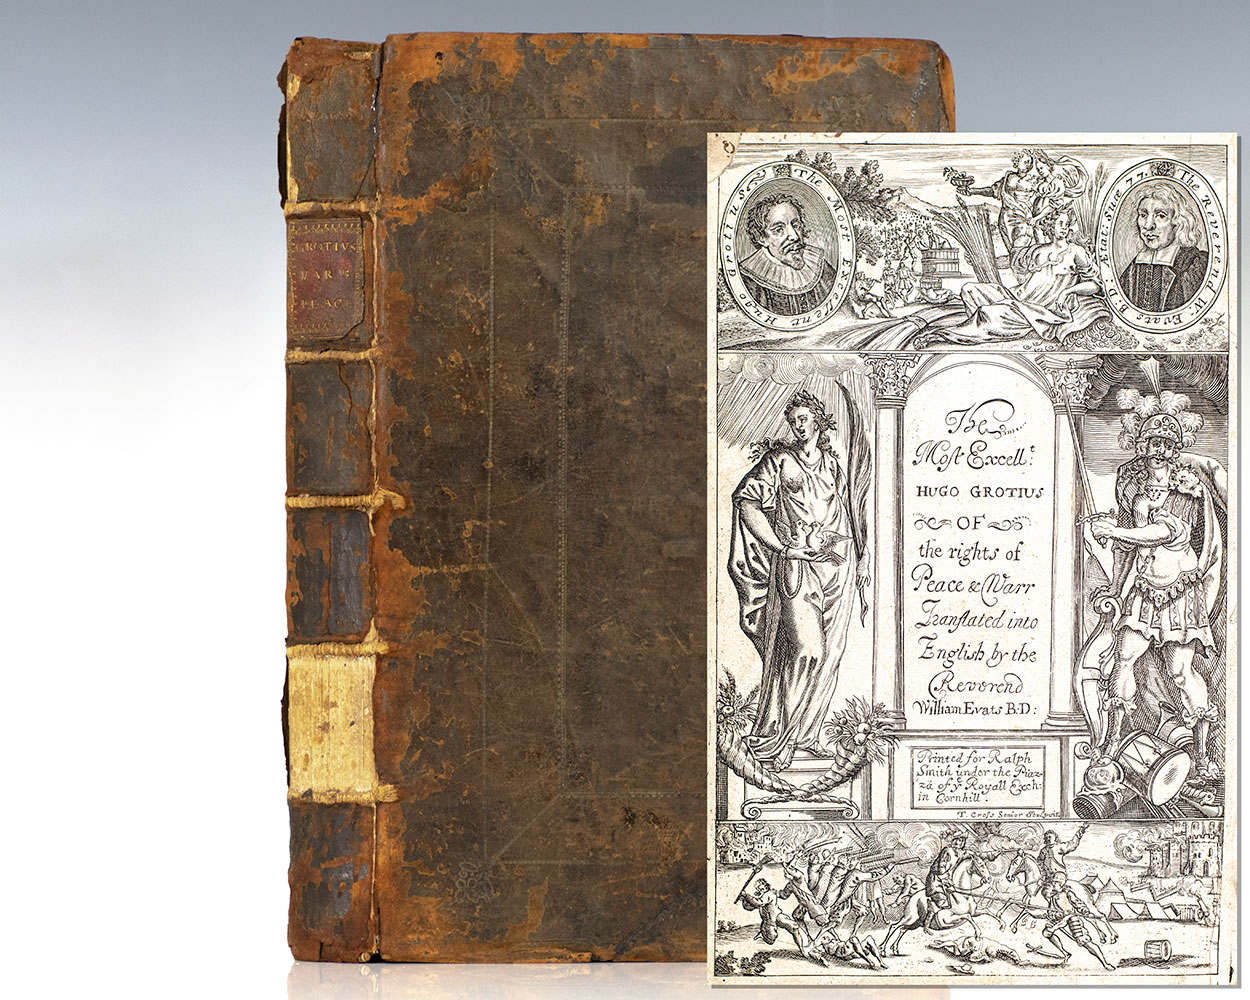 GROTIUS
WAR
PEACE
The Most Excellent Hugo Grotius
The Reverend W. Evats B.D. Ætat. Suæ 77.
The
Most Excell.t
HUGO GROTIUS
OF
the rights of
Peace & Warr
Translated into
English by the
Reverend
William Evats B:D:
Printed for Ralph
Smith under the Piaz-
za of ye Royall Exch:
in Cornhill.
T. Cross Senior Sculpsit